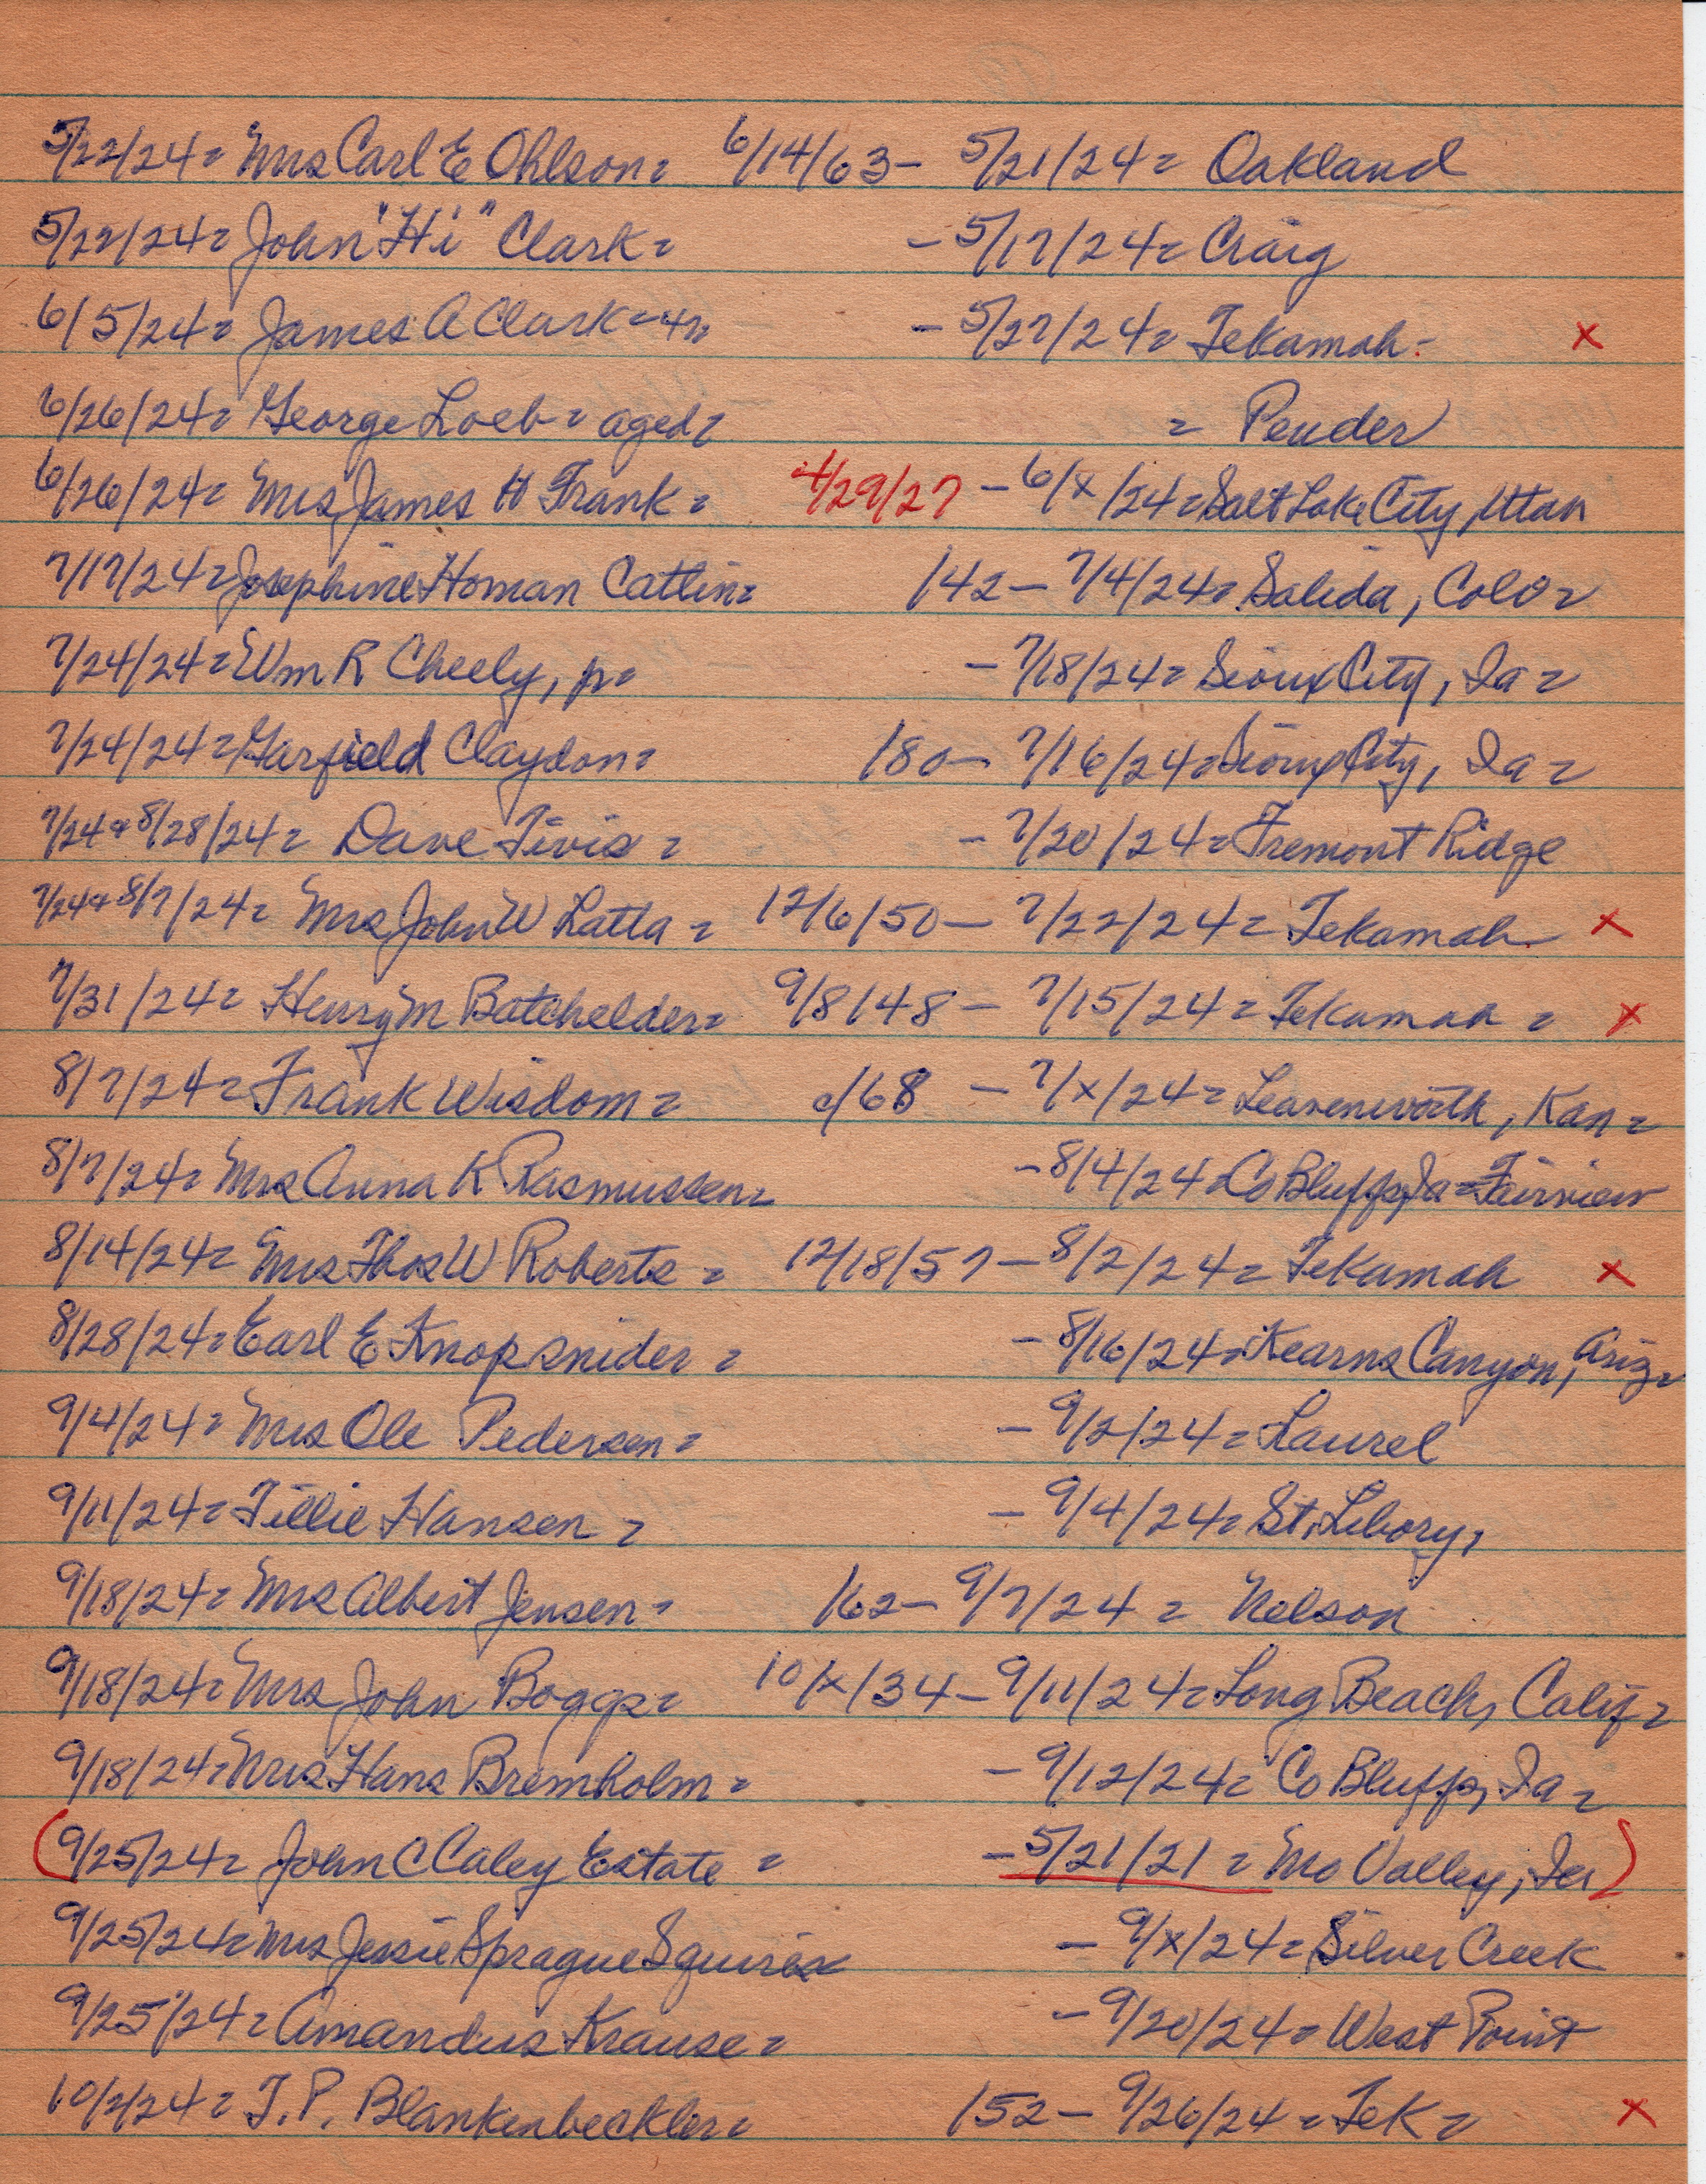 5/22/24= Mrs Carl E Ohlson= 6/14/63- 5/21/24= Oakland
5/22/24= John "Hi" Clark= - 5/17/24= Craig
6/5/24= James A Clark= - 5/27/24= Tekamah= x
6/26/24= George Loeb= aged= = Pender
6/26/24= Mrs James H Frank= 4/29/27 - 6/x/24= Salt Lake City, Utah
7/17/24= Josephine Homan Catlin= /42- 7/4/24= Salida, Colo=
7/24/24= Wm R Cheely, jr= - 7/18/24= Sioux City, Ia=
7/24/24= Garfield Claydon= /80- 7/16/24= Sioux City, Ia=
7/24 & 8/28/24= Dave Tivis= - 7/20/24= Fremont Ridge
7/24 & 8/7/24= Mrs John W Latta= 12/6/50- 7/22/24= Tekamah x
7/31/24= Henry M Batchelder= 9/8/48- 7/15/24= Tekamah= x
8/7/24= Frank Wisdom= c/68 - 7/x/24= Leavenworth, Kan=
8/7/24= Mrs Anna K Rasmussen= - 8/4/24 Co Bluffs, Ia= Fairview
8/14/24= Mrs Thos W Roberts= 12/18/57- 8/2/24= Tekamah x
8/28/24= Earl E Knopsnider= - 8/16/24= Kearns Canyon, Ariz=
9/4/24= Mrs Ole Pedersen= - 9/2/24= Laurel
9/11/24= Tillie Hansen= - 9/4/24= St. Libory,
9/18/24= Mrs Albert Jensen= /62- 9/7/24= Nelson
9/18/24= Mrs John Boggs= 10/x/34- 9/11/24= Long Beach, Calif=
9/18/24= Mrs Hans Bremholm= - 9/12/24= Co Bluffs, Ia=
(9/25/24= John C Caley Estate= - 5/21/21= Mo Valley, Ia)
9/25/24= Mrs Jessie Sprague Squires - 9/x/24= Silver Creek
9/25/24= Amandus Krause= - 9/20/24= West Point
10/2/24= T. P. Blankenbeckler= /52- 9/26/24= Tek= x